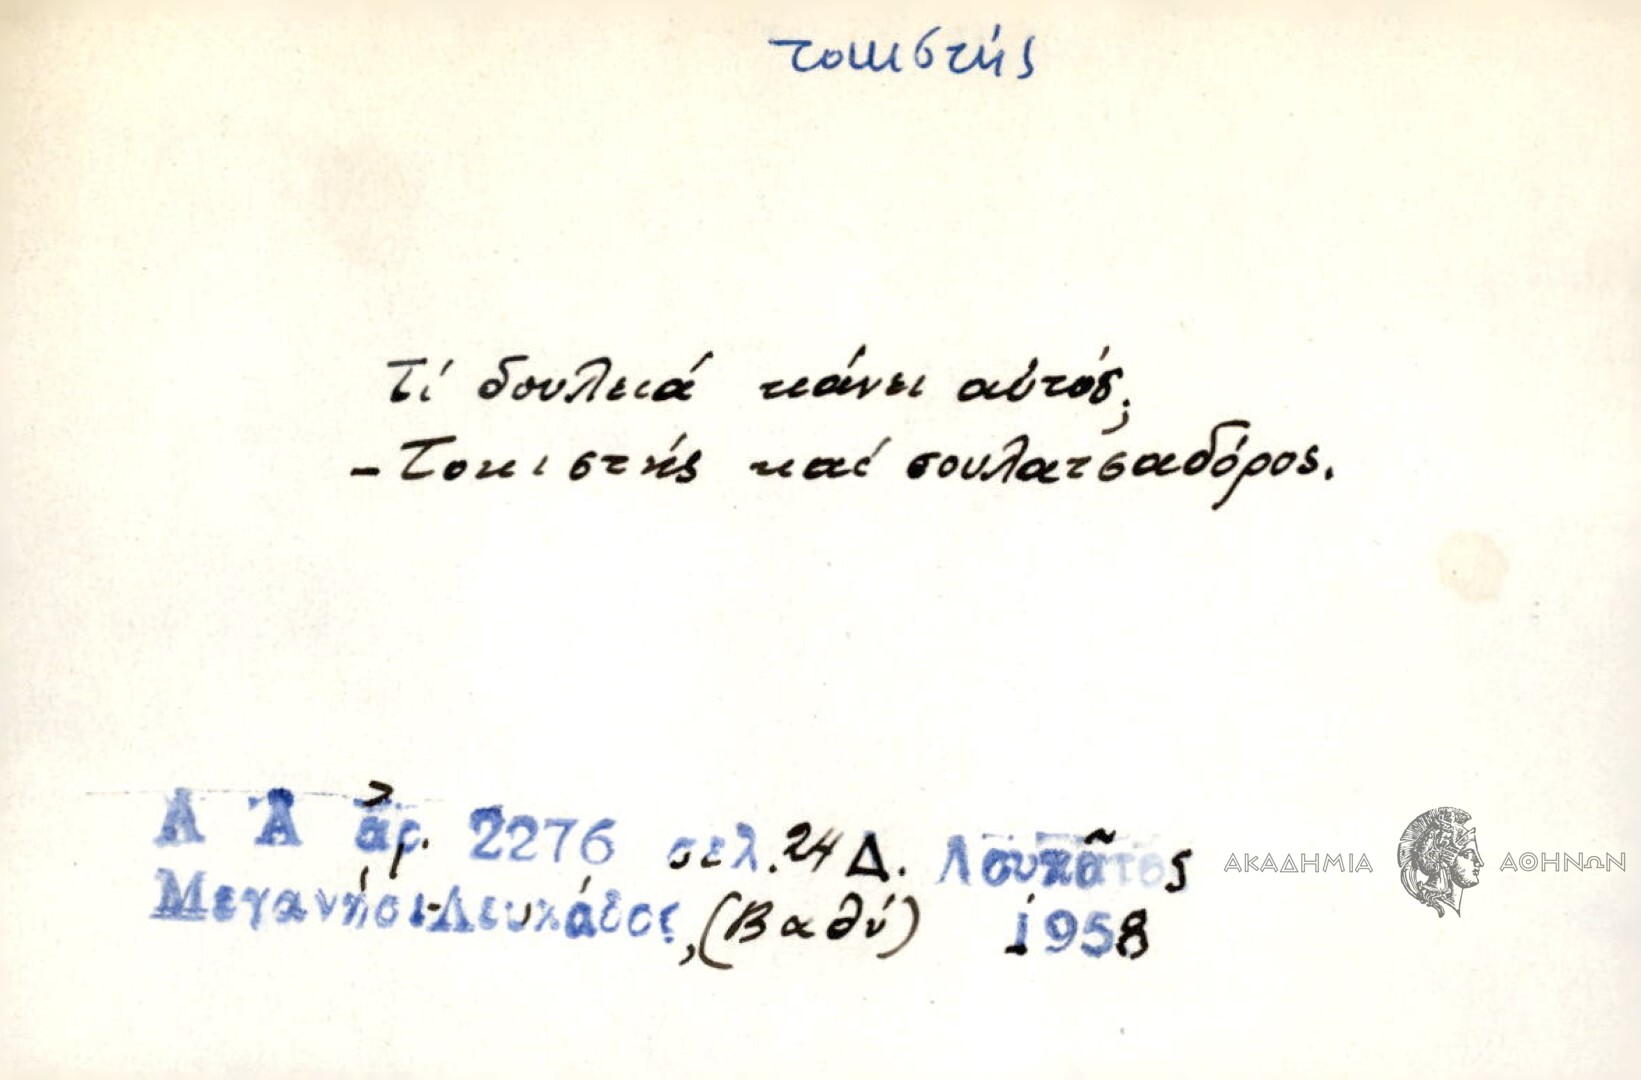 τοκιστής
Τί δουλειά κάνει αὐτός;
- Τοκιστής καί σουλατσαδόρος.
Λ Α ἀρ. 2276 σελ. 24 Δ. Λουκᾶτος
Μεγανήσι-Λευκάδος, (Βαθύ) 1958
ΑΚΑΔΗΜΙΑ ΑΘΗΝΩΝ